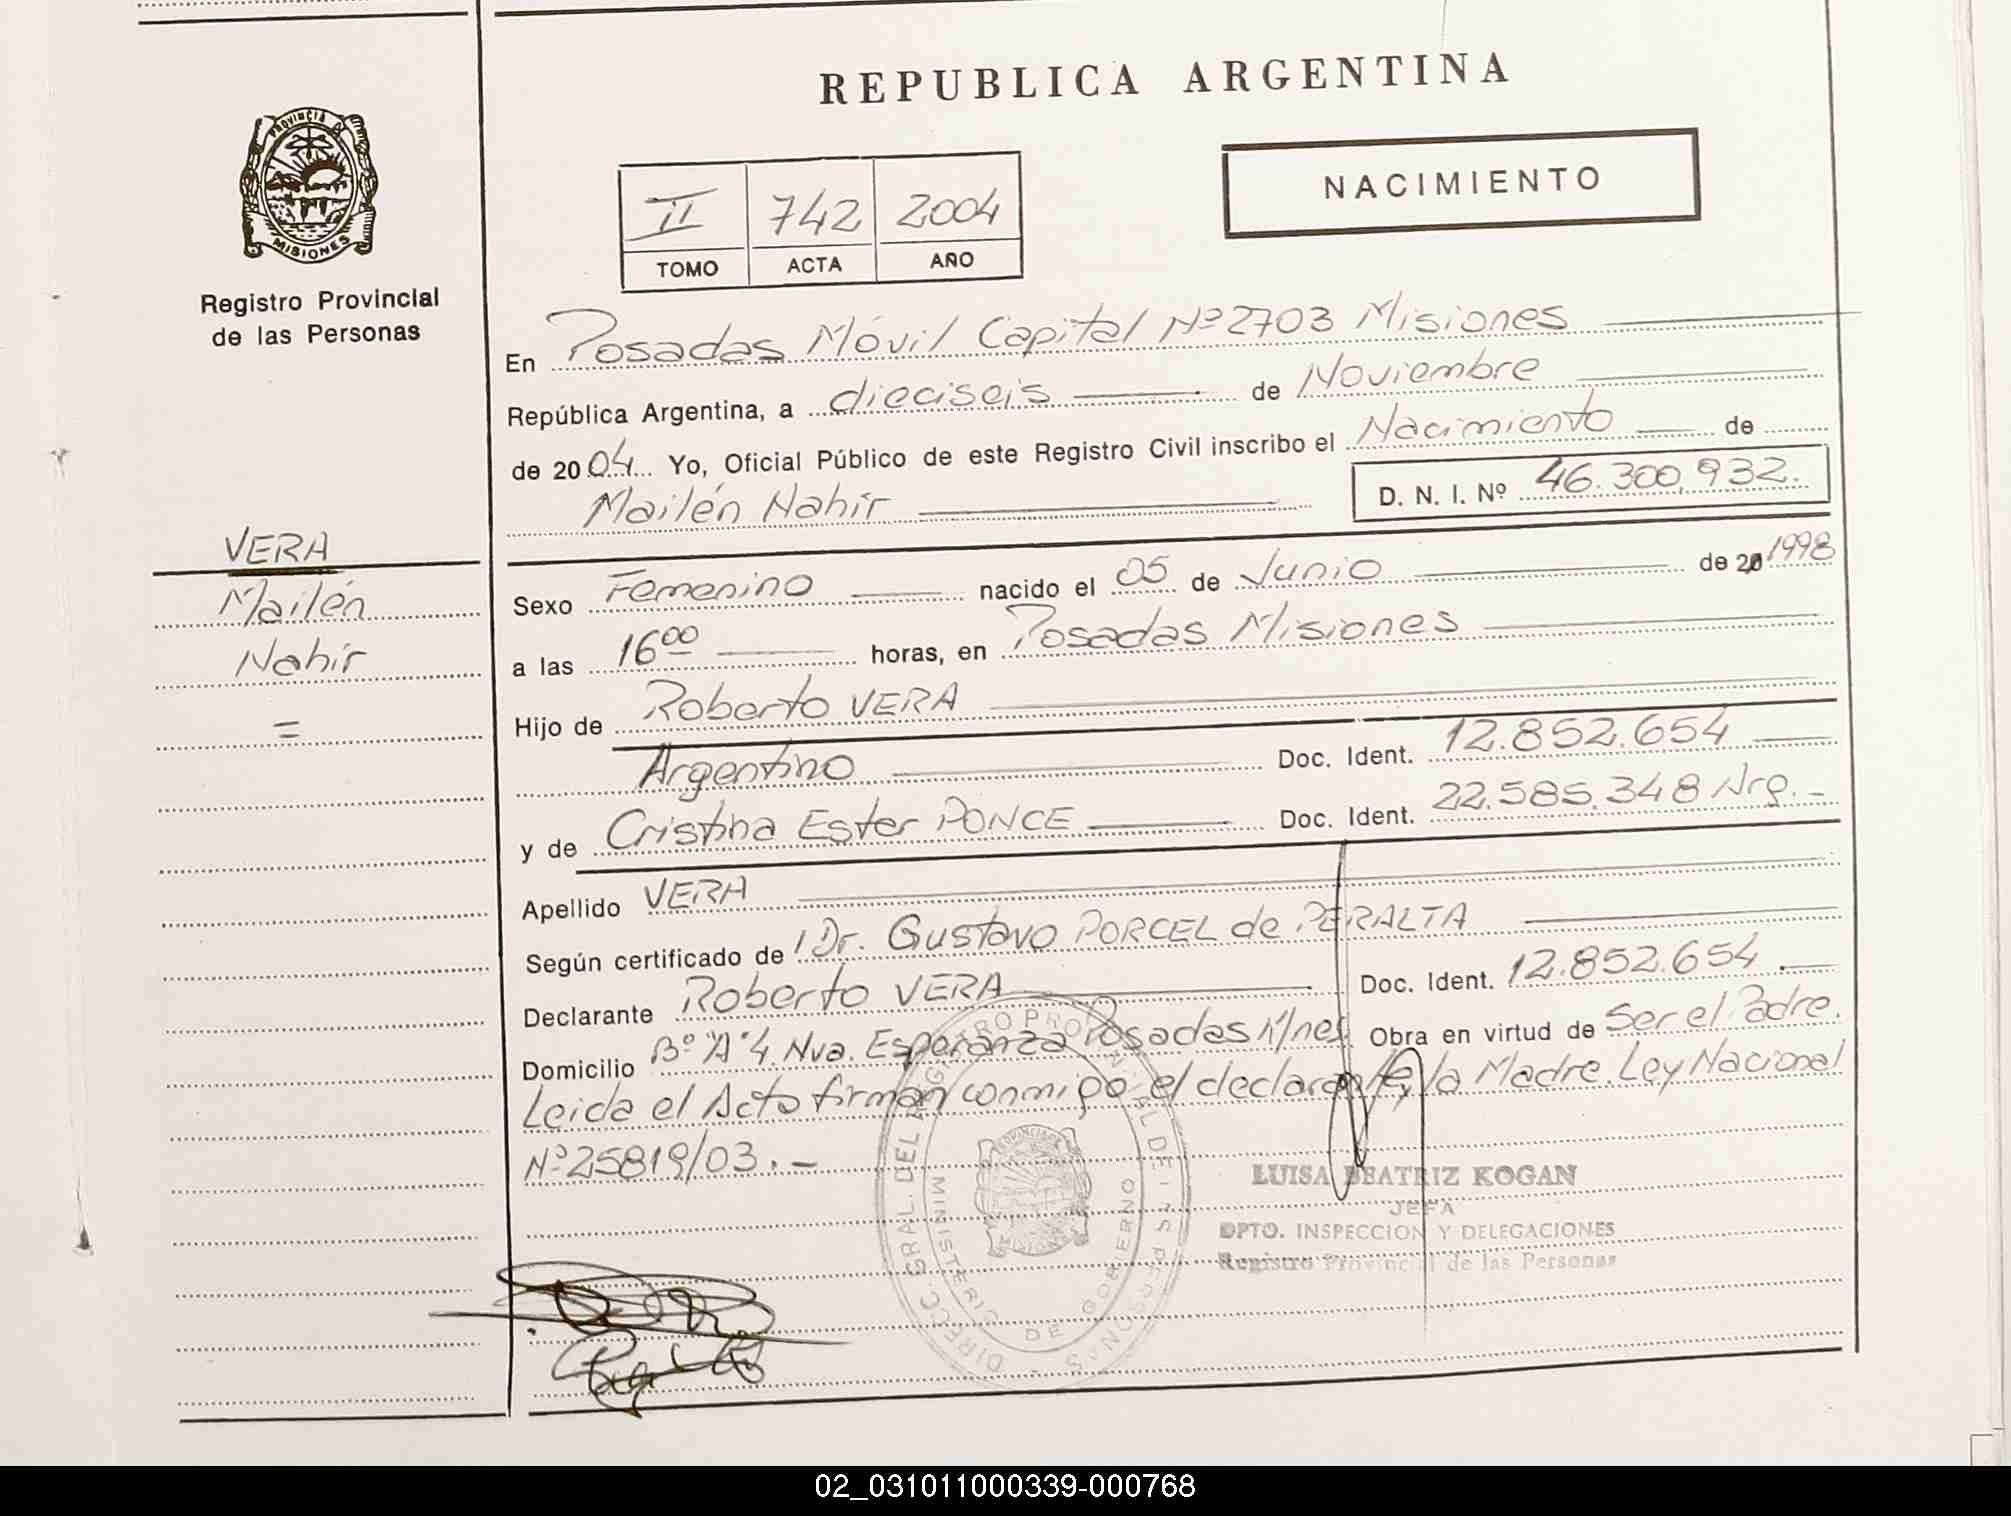 REPUBLICA ARGENTINA
PROVINCIA DE
MISIONES
Registro Provincial
de las Personas
NACIMIENTO
II 742 2004
TOMO ACTA AÑO
En Posadas Móvil Capital Nº 2703 Misiones
República Argentina, a dieciseis de Noviembre
de 2004 Yo, Oficial Público de este Registro Civil inscribo el Nacimiento de
Mailén Nahir D. N. I. Nº 46.300.932.
VERA
Mailén
Nahir
=
Sexo Femenino nacido el 05 de Junio de 20 1998
a las 16 00 horas, en Posadas Misiones
Hijo de Roberto VERA
Argentino Doc. Ident. 12.852.654
y de Cristina Ester PONCE Doc. Ident. 22.585.348 Arg.-
Apellido VERA
Según certificado de Dr. Gustavo PORCEL de PERALTA
Declarante Roberto VERA Doc. Ident. 12.852.654.
Domicilio Bº "A" 4 Nva. Esperanza Posadas Mnes. Obra en virtud de Ser el Padre.
Leida el Acta firman conmigo el declarante, la Madre. Ley Nacional
Nº 25819/03.-
DIRECC. GRAL. DEL REGISTRO PROVINCIAL DE LAS PERSONAS
MINISTERIO DE GOBIERNO
LUISA BEATRIZ KOGAN
JEFA
DPTO. INSPECCION Y DELEGACIONES
Registro Provincial de las Personas
02_031011000339-000768